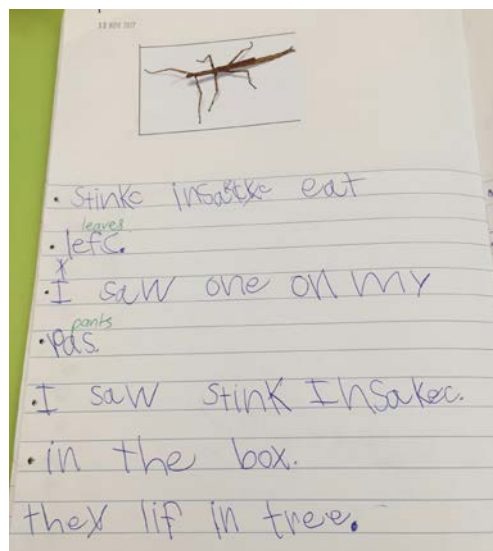 30 NOV 2017
• Stinkc insackc eat
leaves
• lefc.
• I saw one on my
pants
• pas.
• I saw stink Insakec.
• in the box.
they lif in tree.